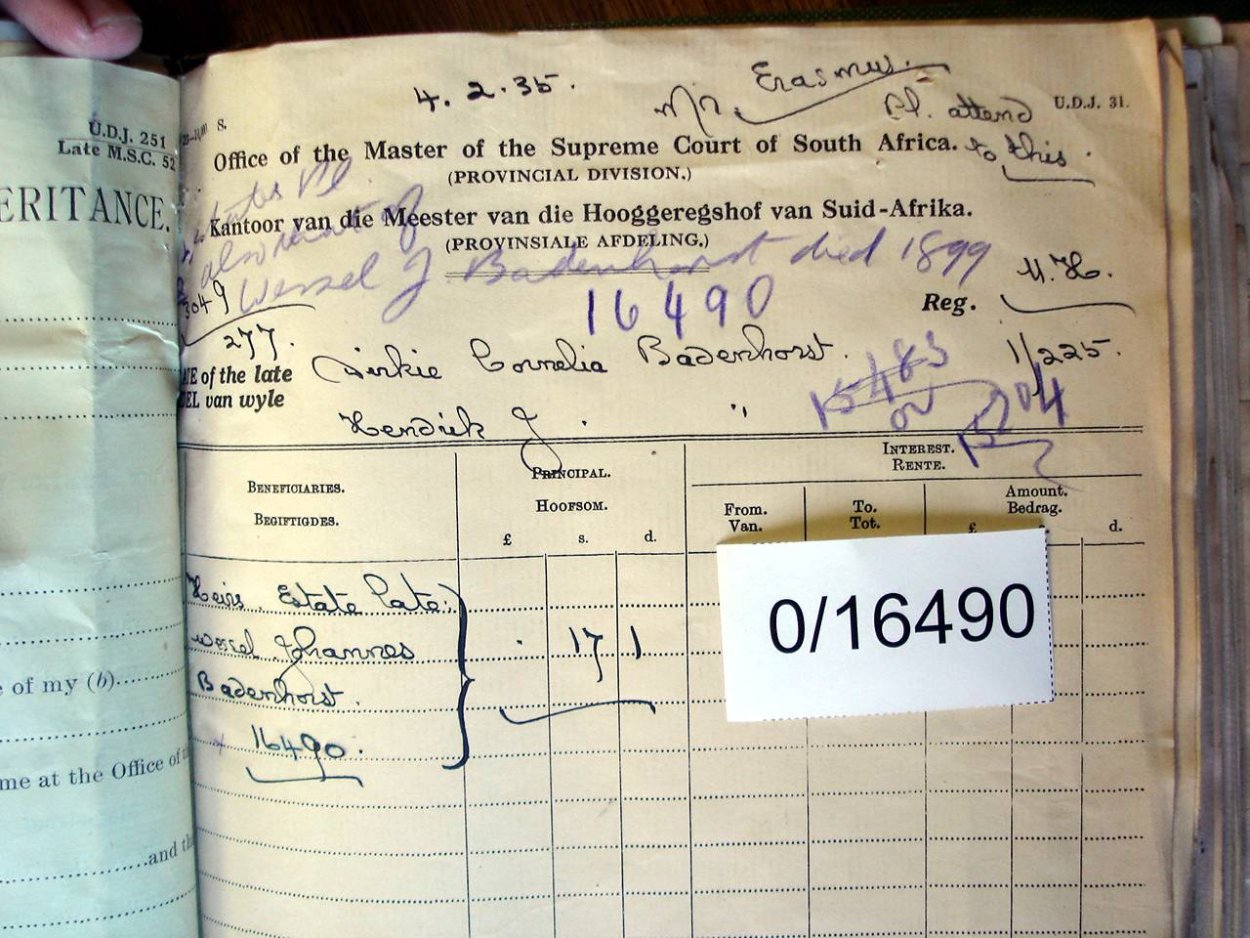 U.D.J. 251
Late M.S.C. 52
ERITANCE.
e of my (b)
me at the Office of
and th
4.2.35.
Mr. Erasmus.
Pl. attend
to this.
U.D.J. 31.
S.
Office of the Master of the Supreme Court of South Africa.
(PROVINCIAL DIVISION.)
Kantoor van die Meester van die Hooggeregshof van Suid-Afrika.
(PROVINSIALE AFDELING.)
also that of
Wessel J Badenhorst died 1899
3049
277.
16490
Reg. M.H.
1/225.
E of the late
EL van wyle
Dirkie Cornelia Badenhorst.
Hendrik J. "
15483
or
BENEFICIARIES.
BEGIFTIGDES.
PRINCIPAL.
HOOFSOM.
£ s. d.
INTEREST.
RENTE.
From.
Van.
To.
Tot.
Amount.
Bedrag.
£ s. d.
Heirs. Estate late
Wessel Johannes
Badenhorst.
16490.
. 17 1
0/16490